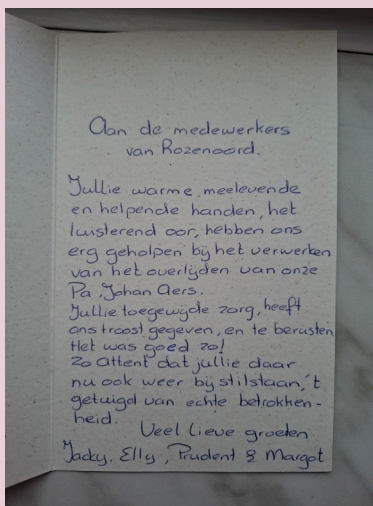 Aan de medewerkers
van Rozenoord.
Jullie warme, meelevende
en helpende handen, het
luisterend oor, hebben ons
erg geholpen bij het verwerken
van het overlijden van onze
Pa, Johan Aers.
Jullie toegewijde zorg, heeft
ons troost gegeven, en te berusten
Het was goed zo!
Zo attent dat jullie daar
nu ook weer bij stilstaan, 't
getuigd van echte betrokken-
heid.
Veel lieve groeten
Jacky, Elly, Prudent & Margot